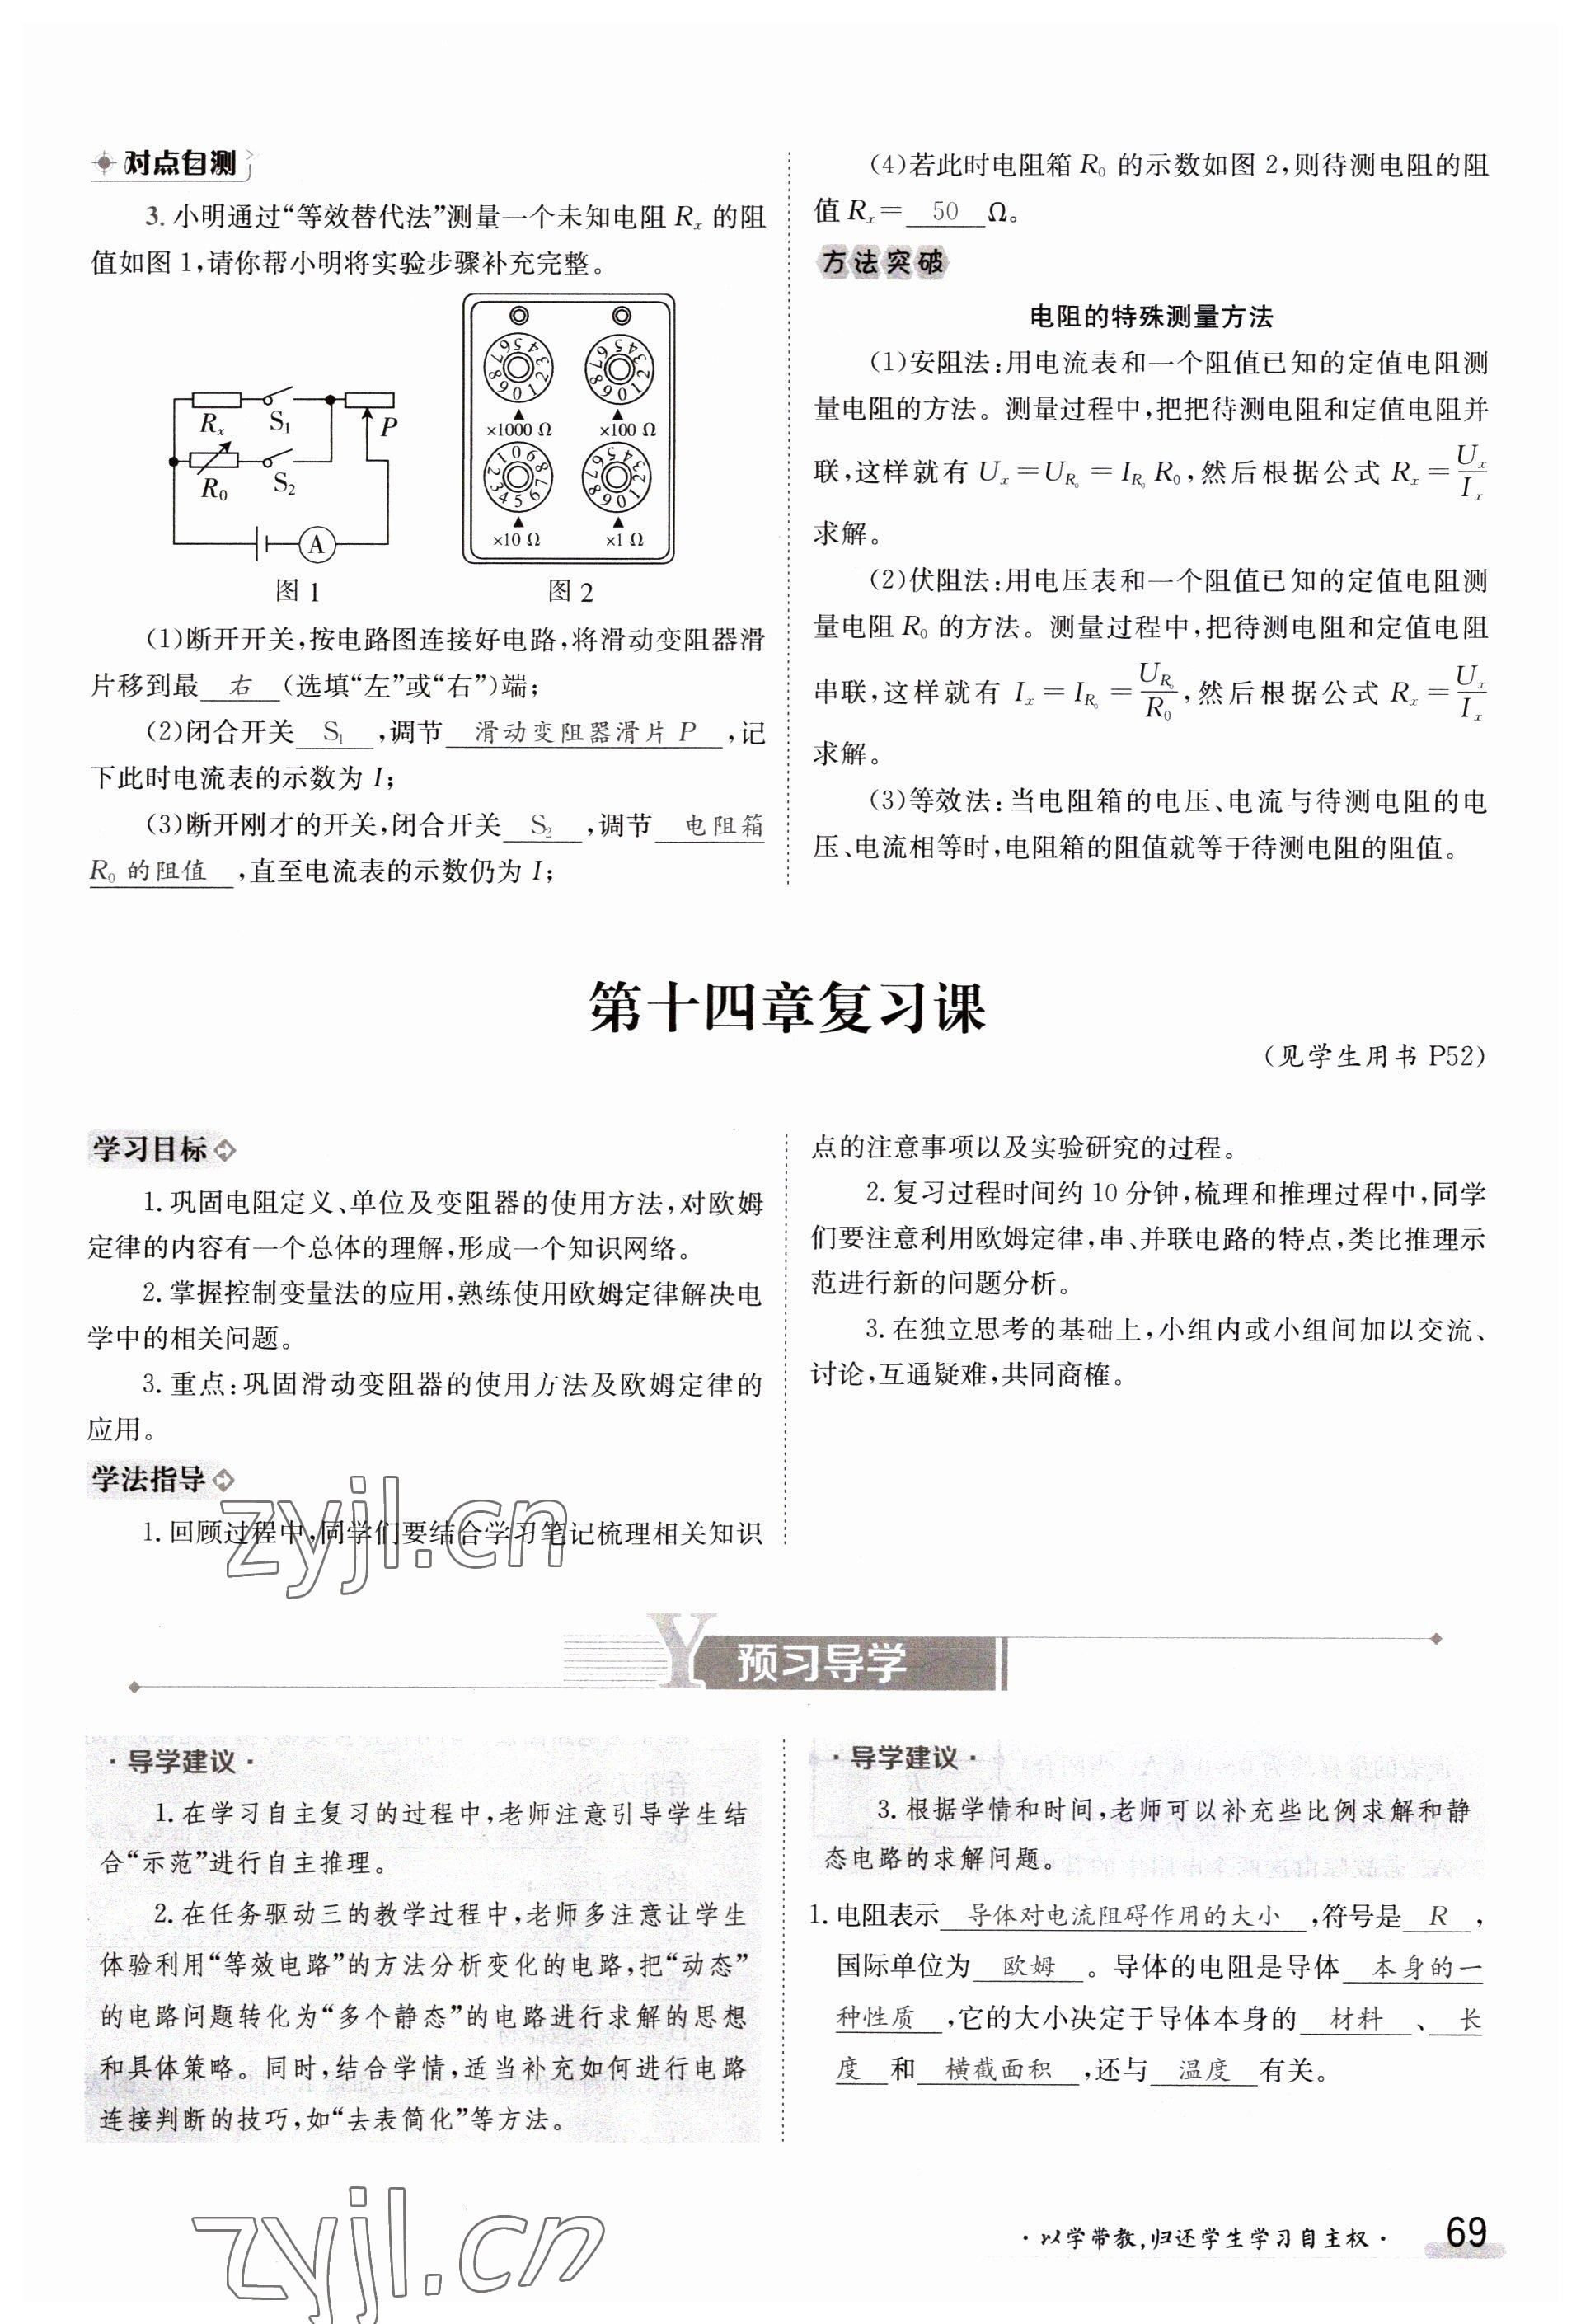 对点自测
3. 小明通过“等效替代法”测量一个未知电阻 Rₓ 的阻
值如图 1,请你帮小明将实验步骤补充完整。
Rₓ S₁ P
R₀ S₂
A
×1000 Ω ×100 Ω
×10 Ω ×1 Ω
图 1 图 2
(1)断开开关,按电路图连接好电路,将滑动变阻器滑
片移到最 右 (选填“左”或“右”)端;
(2)闭合开关 S₁ ,调节 滑动变阻器滑片 P ,记
下此时电流表的示数为 I;
(3)断开刚才的开关,闭合开关 S₂ ,调节 电阻箱
R₀ 的阻值 ,直至电流表的示数仍为 I;
(4)若此时电阻箱 R₀ 的示数如图 2,则待测电阻的阻
值 Rₓ= 50 Ω。
方法突破
电阻的特殊测量方法
(1)安阻法:用电流表和一个阻值已知的定值电阻测
量电阻的方法。测量过程中,把把待测电阻和定值电阻并
联,这样就有 Uₓ=U_{R₀}=I_{R₀}R₀,然后根据公式 Rₓ=Uₓ/Iₓ
求解。
(2)伏阻法:用电压表和一个阻值已知的定值电阻测
量电阻 R₀ 的方法。测量过程中,把待测电阻和定值电阻
串联,这样就有 Iₓ=I_{R₀}=U_{R₀}/R₀,然后根据公式 Rₓ=Uₓ/Iₓ
求解。
(3)等效法:当电阻箱的电压、电流与待测电阻的电
压、电流相等时,电阻箱的阻值就等于待测电阻的阻值。
第十四章复习课
(见学生用书 P52)
学习目标
1. 巩固电阻定义、单位及变阻器的使用方法,对欧姆
定律的内容有一个总体的理解,形成一个知识网络。
2. 掌握控制变量法的应用,熟练使用欧姆定律解决电
学中的相关问题。
3. 重点:巩固滑动变阻器的使用方法及欧姆定律的
应用。
学法指导
1. 回顾过程中,同学们要结合学习笔记梳理相关知识
点的注意事项以及实验研究的过程。
2. 复习过程时间约 10 分钟,梳理和推理过程中,同学
们要注意利用欧姆定律,串、并联电路的特点,类比推理示
范进行新的问题分析。
3. 在独立思考的基础上,小组内或小组间加以交流、
讨论,互通疑难,共同商榷。
zyjl.cn
Y 预习导学
·导学建议·
1. 在学习自主复习的过程中,老师注意引导学生结
合“示范”进行自主推理。
2. 在任务驱动三的教学过程中,老师多注意让学生
体验利用“等效电路”的方法分析变化的电路,把“动态”
的电路问题转化为“多个静态”的电路进行求解的思想
和具体策略。同时,结合学情,适当补充如何进行电路
连接判断的技巧,如“去表简化”等方法。
·导学建议·
3. 根据学情和时间,老师可以补充些比例求解和静
态电路的求解问题。
1. 电阻表示 导体对电流阻碍作用的大小 ,符号是 R ,
国际单位为 欧姆 。导体的电阻是导体 本身的一
种性质 ,它的大小决定于导体本身的 材料 、 长
度 和 横截面积 ,还与 温度 有关。
zyjl.cn
·以学带教,归还学生学习自主权·
69